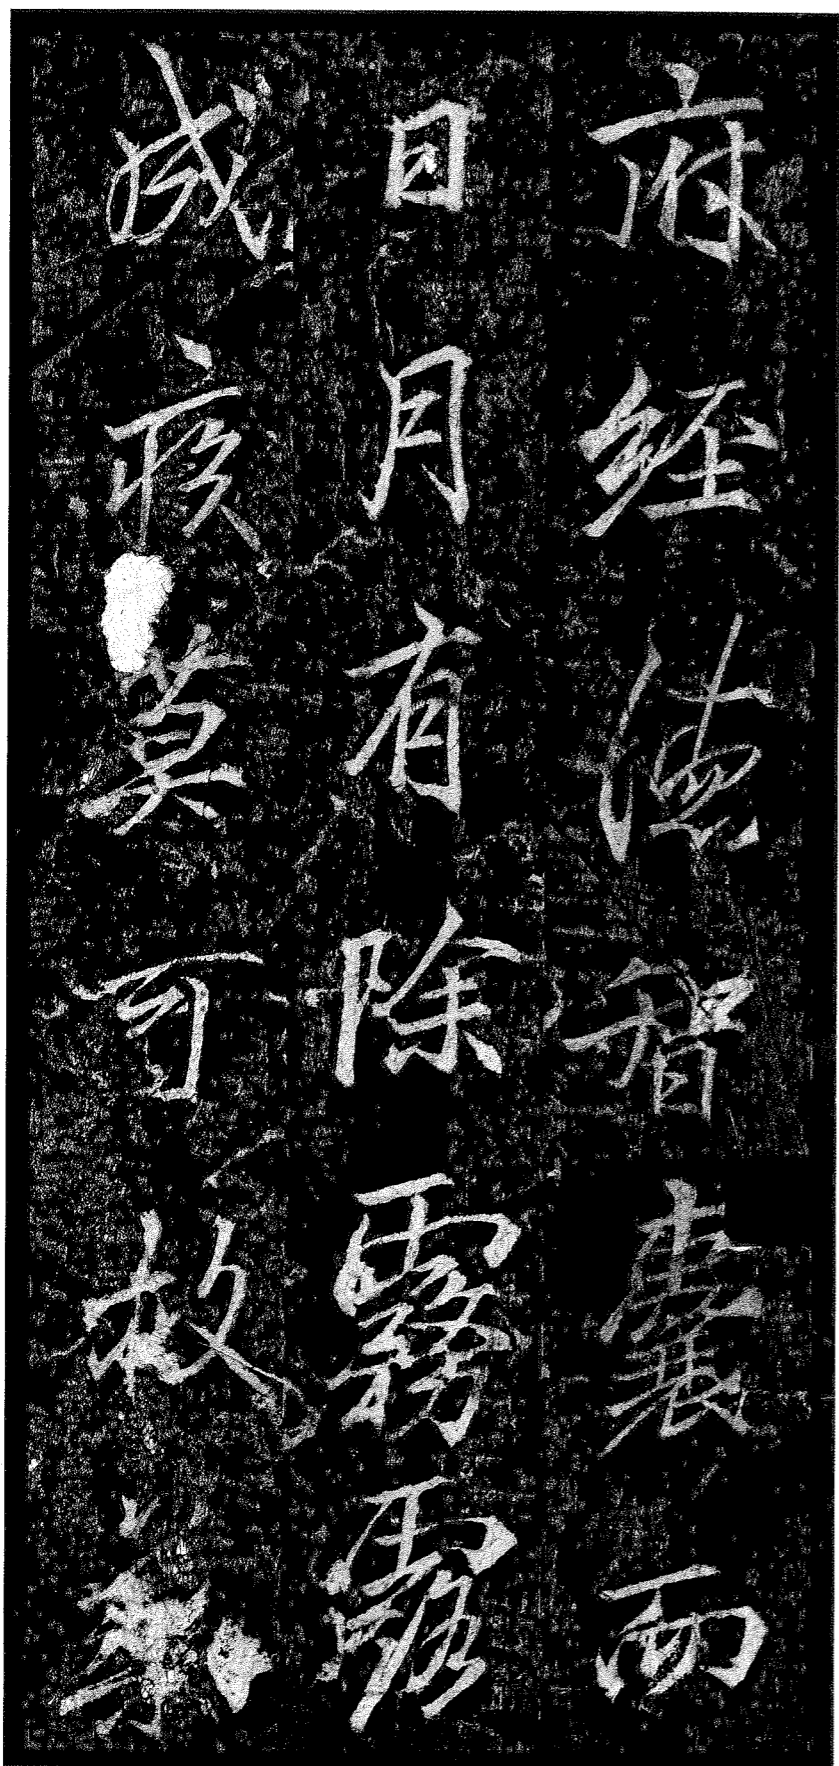 府經德智囊而
日月有除霧露
成疾莫可救藥